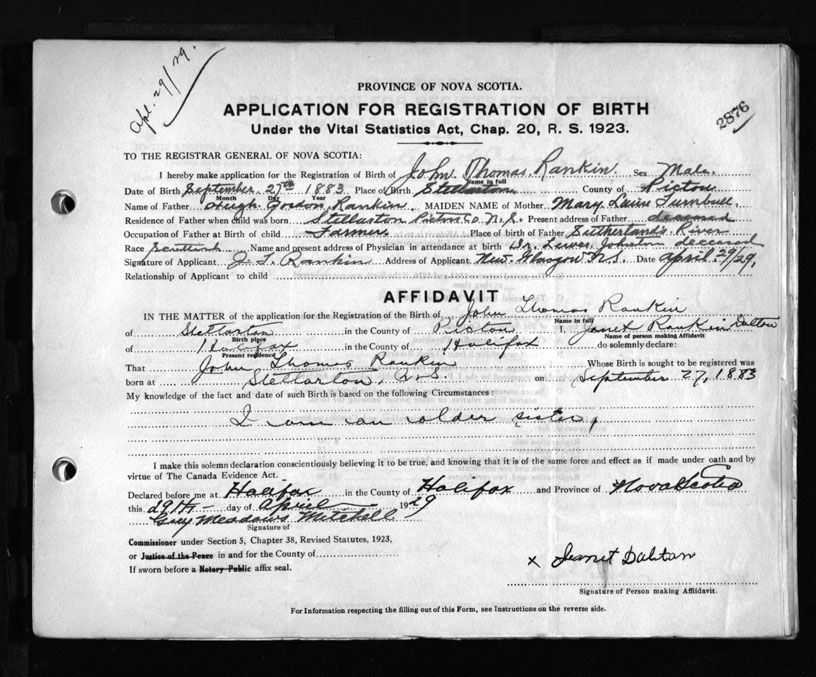 Apl. 29/29.
PROVINCE OF NOVA SCOTIA.
APPLICATION FOR REGISTRATION OF BIRTH
2876
Under the Vital Statistics Act, Chap. 20, R. S. 1923.
TO THE REGISTRAR GENERAL OF NOVA SCOTIA:
I hereby make application for the Registration of Birth of John Thomas Rankin Sex Male
Name in full
Date of Birth September 27th 1883 Place of Birth Stellarton County of Pictou
Month Day Year
Name of Father Hugh Gordon Rankin. MAIDEN NAME of Mother Mary Turnbull.
Residence of Father when child was born Stellarton Pictou Co. N.S. Present address of Father deceased
Occupation of Father at Birth of child Farmer Place of birth of Father Sutherlands River
Race Name and present address of Physician in attendance at birth Dr. Johnston deceased
Signature of Applicant J. T. Rankin Address of Applicant New Glasgow N.S. Date April 29/29.
Relationship of Applicant to child
AFFIDAVIT
IN THE MATTER of the application for the Registration of the Birth of John Thomas Rankin
Name in full
of Stellarton in the County of Pictou I, Janet Rankin Dalton
Birth place Name of person making Affidavit
of Halifax in the County of Halifax do solemnly declare:
Present residence
That John Thomas Rankin Whose Birth is sought to be registered was
born at Stellarton, N.S. on September 27, 1883
My knowledge of the fact and date of such Birth is based on the following Circumstances:
I am an older sister,
I make this solemn declaration conscientiously believing it to be true, and knowing that it is of the same force and effect as if made under oath and by
virtue of The Canada Evidence Act.
Declared before me at Halifax in the County of Halifax and Province of Nova Scotia
this 29th day of April 1929
Guy Meadows Mitchell
Signature of
Commissioner under Section 5, Chapter 38, Revised Statutes, 1923,
or Justice of the Peace in and for the County of
If sworn before a Notary Public affix seal.
x Janet Dalton
Signature of Person making Affidavit.
For Information respecting the filling out of this Form, see Instructions on the reverse side.